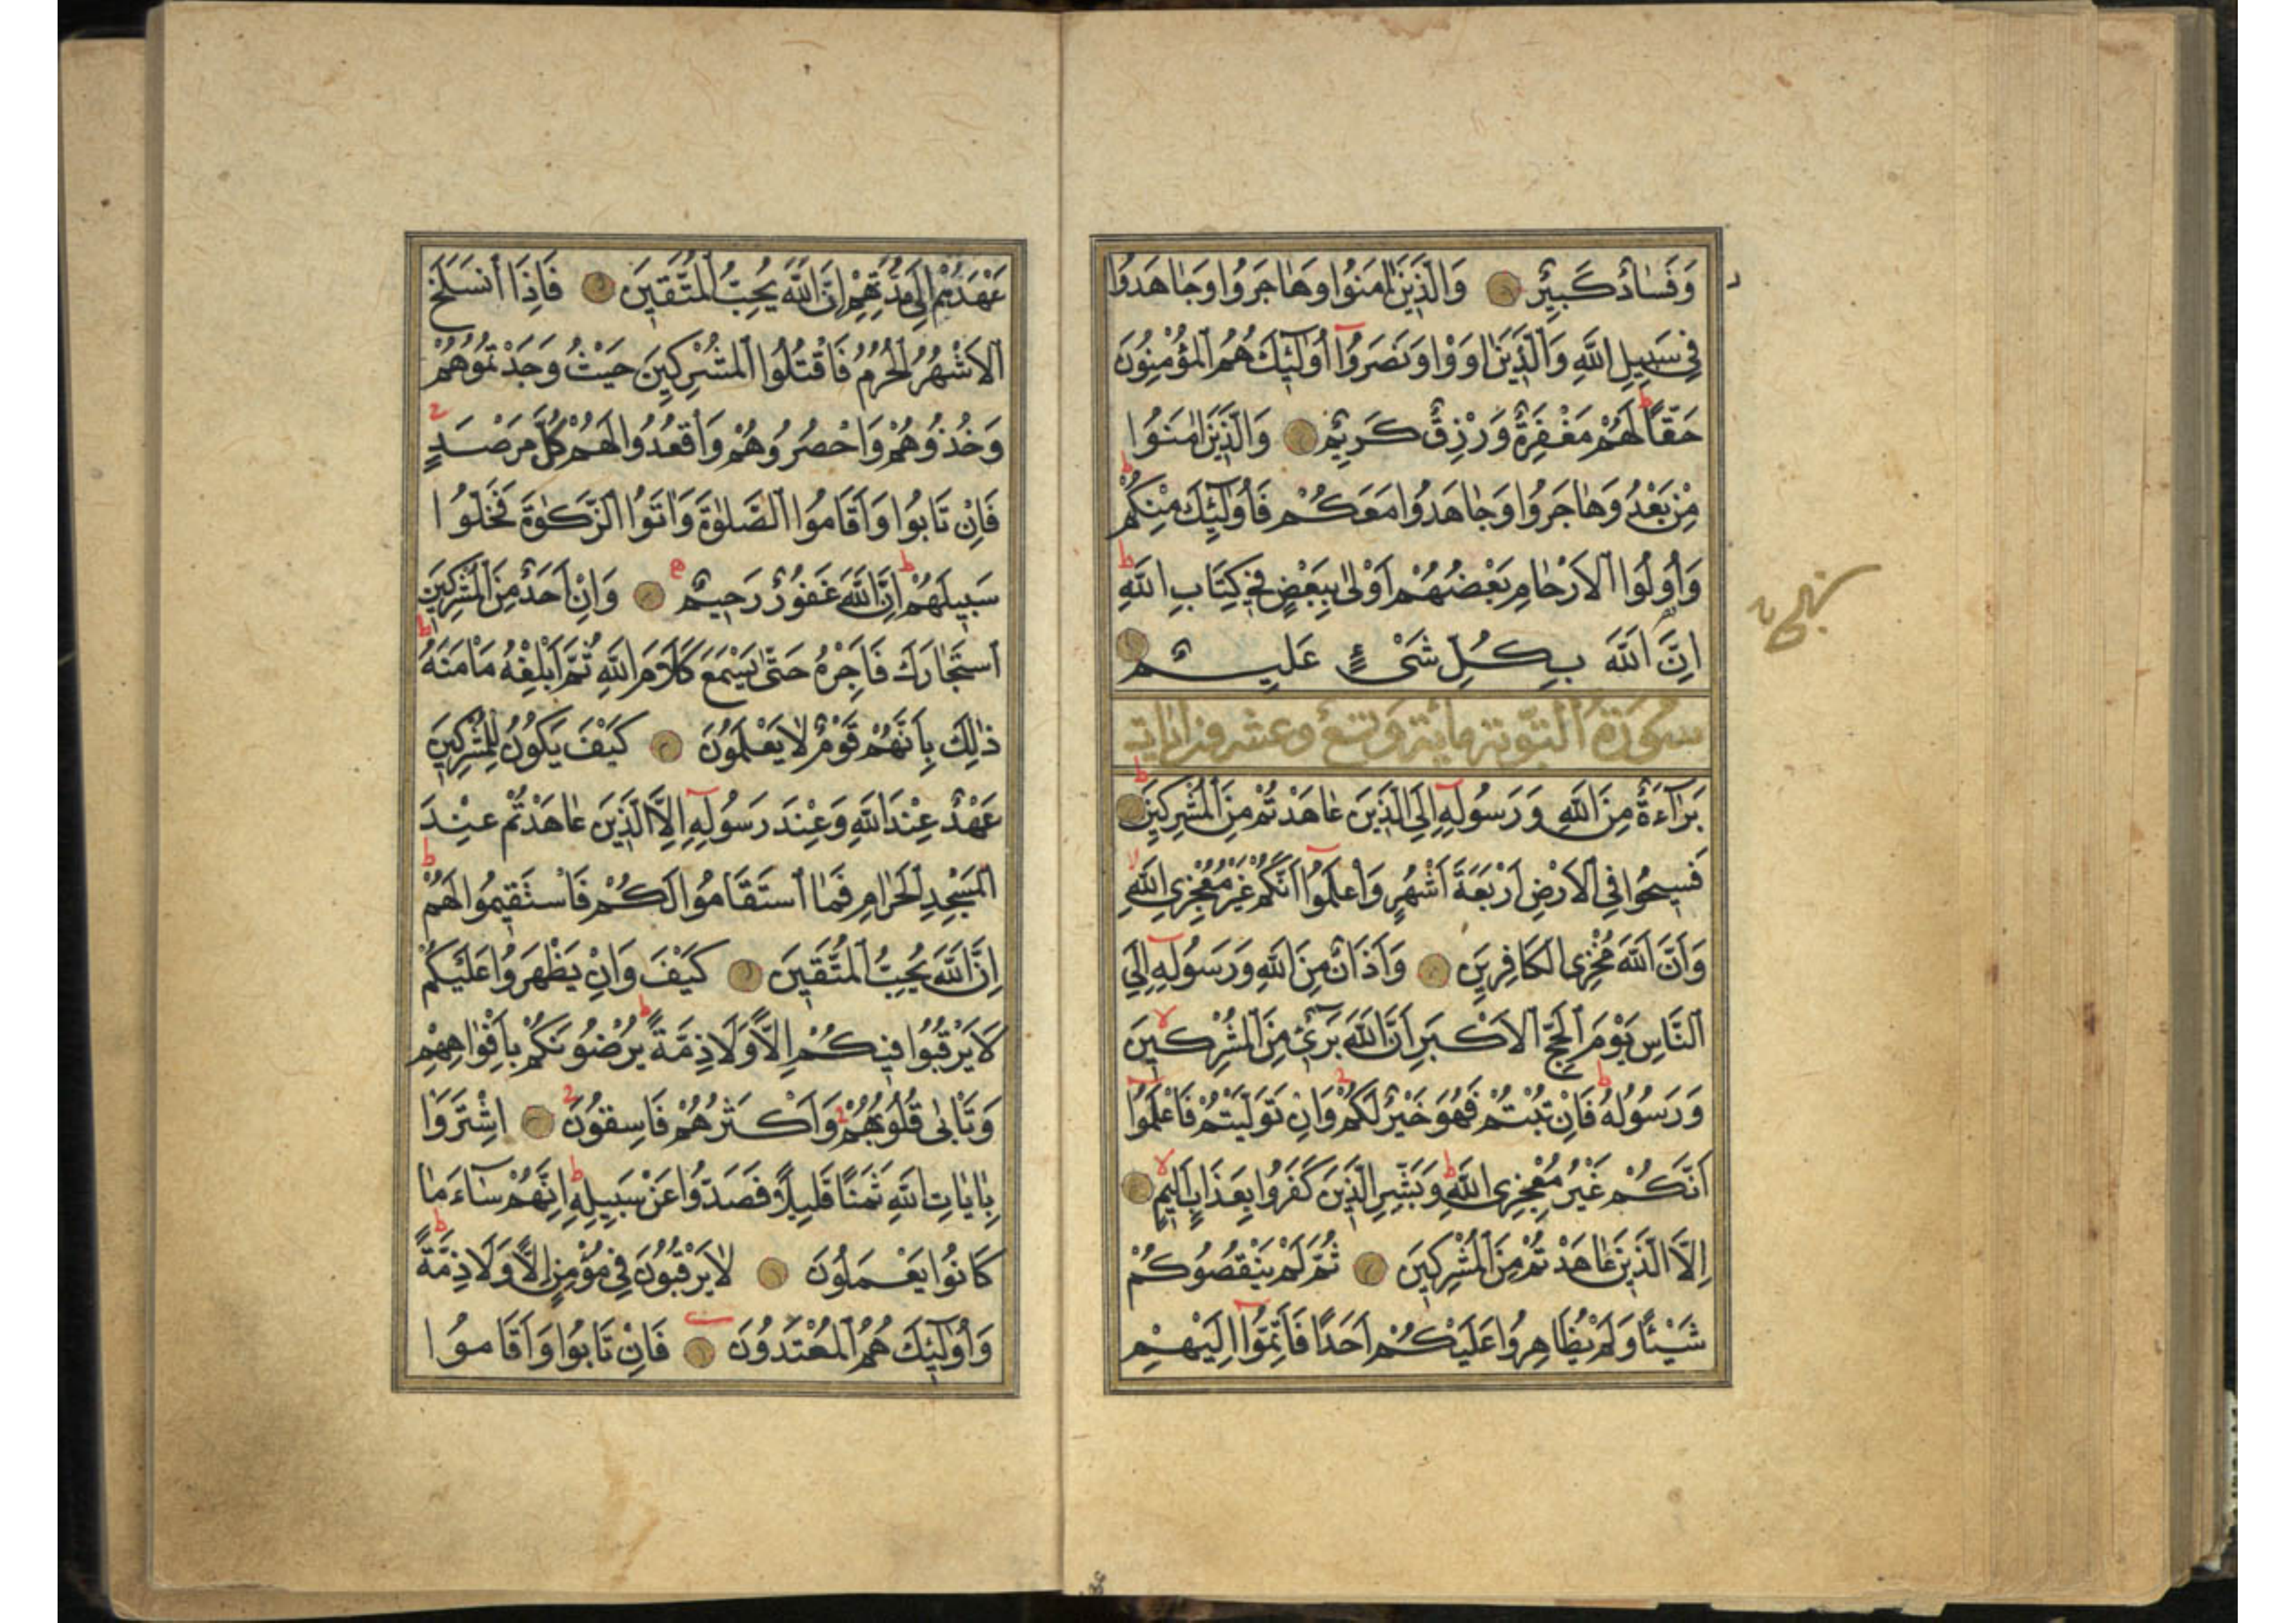 وَفَسَادٌ كَبِيرٌ وَالَّذِينَ اٰمَنُوا وَهَاجَرُوا وَجَاهَدُوا
فِي سَبِيلِ اللّٰهِ وَالَّذِينَ اٰوَوْا وَنَصَرُوا اُولٰئِكَ هُمُ الْمُؤْمِنُونَ
حَقًّا لَهُمْ مَغْفِرَةٌ وَرِزْقٌ كَرِيمٌ وَالَّذِينَ اٰمَنُوا
مِنْ بَعْدُ وَهَاجَرُوا وَجَاهَدُوا مَعَكُمْ فَاُولٰئِكَ مِنْكُمْ
وَاُولُوا الْاَرْحَامِ بَعْضُهُمْ اَوْلٰى بِبَعْضٍ فِي كِتَابِ اللّٰهِ
اِنَّ اللّٰهَ بِكُلِّ شَيْءٍ عَلِيمٌ
سُورَةُ التَّوْبَةِ مِائَةٌ وَتِسْعٌ وَعِشْرُونَ اٰيَات
بَرَاءَةٌ مِنَ اللّٰهِ وَرَسُولِهِ اِلَى الَّذِينَ عَاهَدْتُمْ مِنَ الْمُشْرِكِينَ
فَسِيحُوا فِي الْاَرْضِ اَرْبَعَةَ اَشْهُرٍ وَاعْلَمُوا اَنَّكُمْ غَيْرُ مُعْجِزِي اللّٰهِ
وَاَنَّ اللّٰهَ مُخْزِي الْكَافِرِينَ وَاَذَانٌ مِنَ اللّٰهِ وَرَسُولِهِ اِلَى
النَّاسِ يَوْمَ الْحَجِّ الْاَكْبَرِ اَنَّ اللّٰهَ بَرِيءٌ مِنَ الْمُشْرِكِينَ
وَرَسُولُهُ فَاِنْ تُبْتُمْ فَهُوَ خَيْرٌ لَكُمْ وَاِنْ تَوَلَّيْتُمْ فَاعْلَمُوا
اَنَّكُمْ غَيْرُ مُعْجِزِي اللّٰهِ وَبَشِّرِ الَّذِينَ كَفَرُوا بِعَذَابٍ اَلِيمٍ
اِلَّا الَّذِينَ عَاهَدْتُمْ مِنَ الْمُشْرِكِينَ ثُمَّ لَمْ يَنْقُصُوكُمْ
شَيْئًا وَلَمْ يُظَاهِرُوا عَلَيْكُمْ اَحَدًا فَاَتِمُّوا اِلَيْهِمْ
عَهْدَهُمْ اِلٰى مُدَّتِهِمْ اِنَّ اللّٰهَ يُحِبُّ الْمُتَّقِينَ فَاِذَا انْسَلَخَ
الْاَشْهُرُ الْحُرُمُ فَاقْتُلُوا الْمُشْرِكِينَ حَيْثُ وَجَدْتُمُوهُمْ
وَخُذُوهُمْ وَاحْصُرُوهُمْ وَاقْعُدُوا لَهُمْ كُلَّ مَرْصَدٍ
فَاِنْ تَابُوا وَاَقَامُوا الصَّلٰوةَ وَاٰتَوُا الزَّكٰوةَ فَخَلُّوا
سَبِيلَهُمْ اِنَّ اللّٰهَ غَفُورٌ رَحِيمٌ وَاِنْ اَحَدٌ مِنَ الْمُشْرِكِينَ
اسْتَجَارَكَ فَاَجِرْهُ حَتّٰى يَسْمَعَ كَلَامَ اللّٰهِ ثُمَّ اَبْلِغْهُ مَاْمَنَهُ
ذٰلِكَ بِاَنَّهُمْ قَوْمٌ لَا يَعْلَمُونَ كَيْفَ يَكُونُ لِلْمُشْرِكِينَ
عَهْدٌ عِنْدَ اللّٰهِ وَعِنْدَ رَسُولِهِ اِلَّا الَّذِينَ عَاهَدْتُمْ عِنْدَ
الْمَسْجِدِ الْحَرَامِ فَمَا اسْتَقَامُوا لَكُمْ فَاسْتَقِيمُوا لَهُمْ
اِنَّ اللّٰهَ يُحِبُّ الْمُتَّقِينَ كَيْفَ وَاِنْ يَظْهَرُوا عَلَيْكُمْ
لَا يَرْقُبُوا فِيكُمْ اِلًّا وَلَا ذِمَّةً يُرْضُونَكُمْ بِاَفْوَاهِهِمْ
وَتَاْبٰى قُلُوبُهُمْ وَاَكْثَرُهُمْ فَاسِقُونَ اِشْتَرَوْا
بِاٰيَاتِ اللّٰهِ ثَمَنًا قَلِيلًا فَصَدُّوا عَنْ سَبِيلِهِ اِنَّهُمْ سَاءَ مَا
كَانُوا يَعْمَلُونَ لَا يَرْقُبُونَ فِي مُؤْمِنٍ اِلًّا وَلَا ذِمَّةً
وَاُولٰئِكَ هُمُ الْمُعْتَدُونَ فَاِنْ تَابُوا وَاَقَامُوا